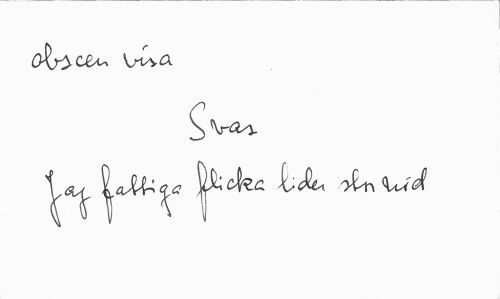 obscen visa
Svar
Jag fattiga flicka lider stor nöd